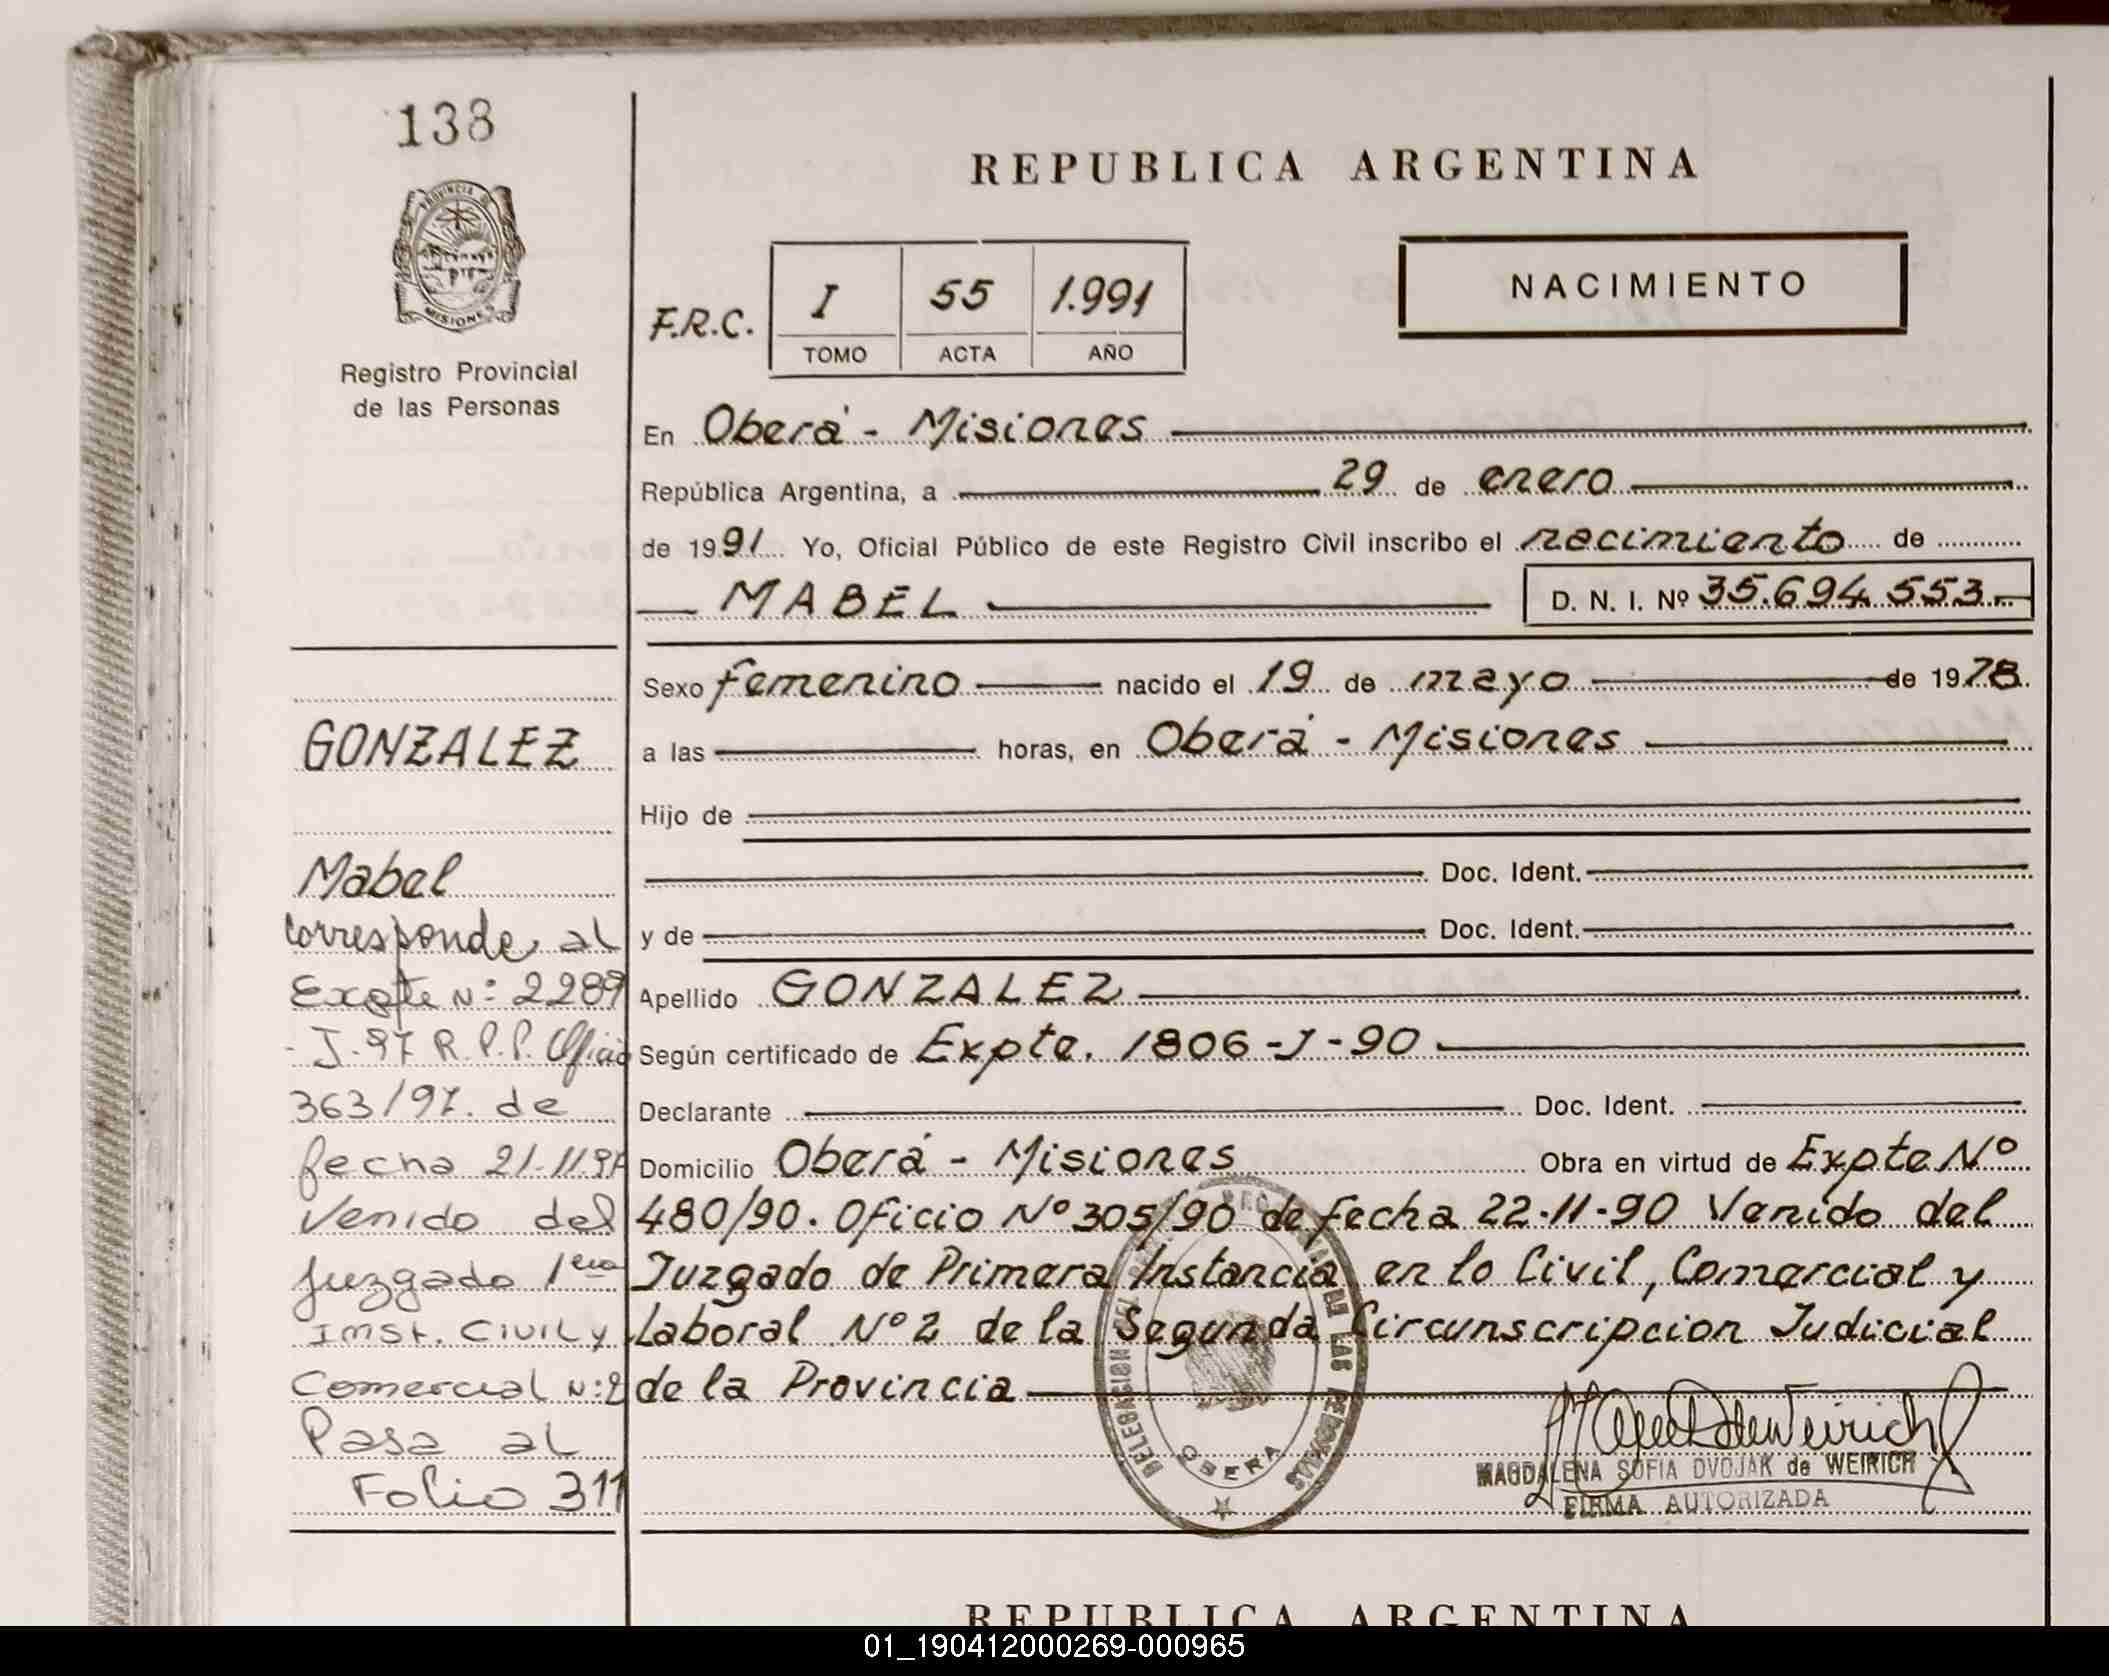 138
PROVINCIA DE
MISIONES
Registro Provincial
de las Personas
REPUBLICA ARGENTINA
NACIMIENTO
F.R.C. I 55 1.991
TOMO ACTA AÑO
En Oberá - Misiones
República Argentina, a 29 de enero
de 1991 Yo, Oficial Público de este Registro Civil inscribo el nacimiento de
MABEL D. N. I. Nº 35.694.553.-
Sexo femenino nacido el 19 de mayo de 1978.
a las horas, en Oberá - Misiones
Hijo de
Doc. Ident.
y de Doc. Ident.
Apellido GONZALEZ
Según certificado de Expte. 1806-J-90
Declarante Doc. Ident.
Domicilio Oberá - Misiones Obra en virtud de Expte Nº
480/90. Oficio Nº 305/90 de fecha 22-11-90 Venido del
Juzgado de Primera Instancia en lo Civil, Comercial y
Laboral Nº 2 de la Segunda Circunscripcion Judicial
de la Provincia
GONZALEZ
Mabel
Corresponde al
Expte N: 2289
- J-97 R.P.P. Oficio
363/97. de
fecha 21-11-97
Venido del
Juzgado 1era
Inst. Civil y
Comercial N:2
Pasa al
Folio 311
DELEGACION DE LAS PERSONAS
OBERA
MAGDALENA SOFIA DVOJAK de WEIRICH
FIRMA AUTORIZADA
REPUBLICA ARGENTINA
01_190412000269-000965